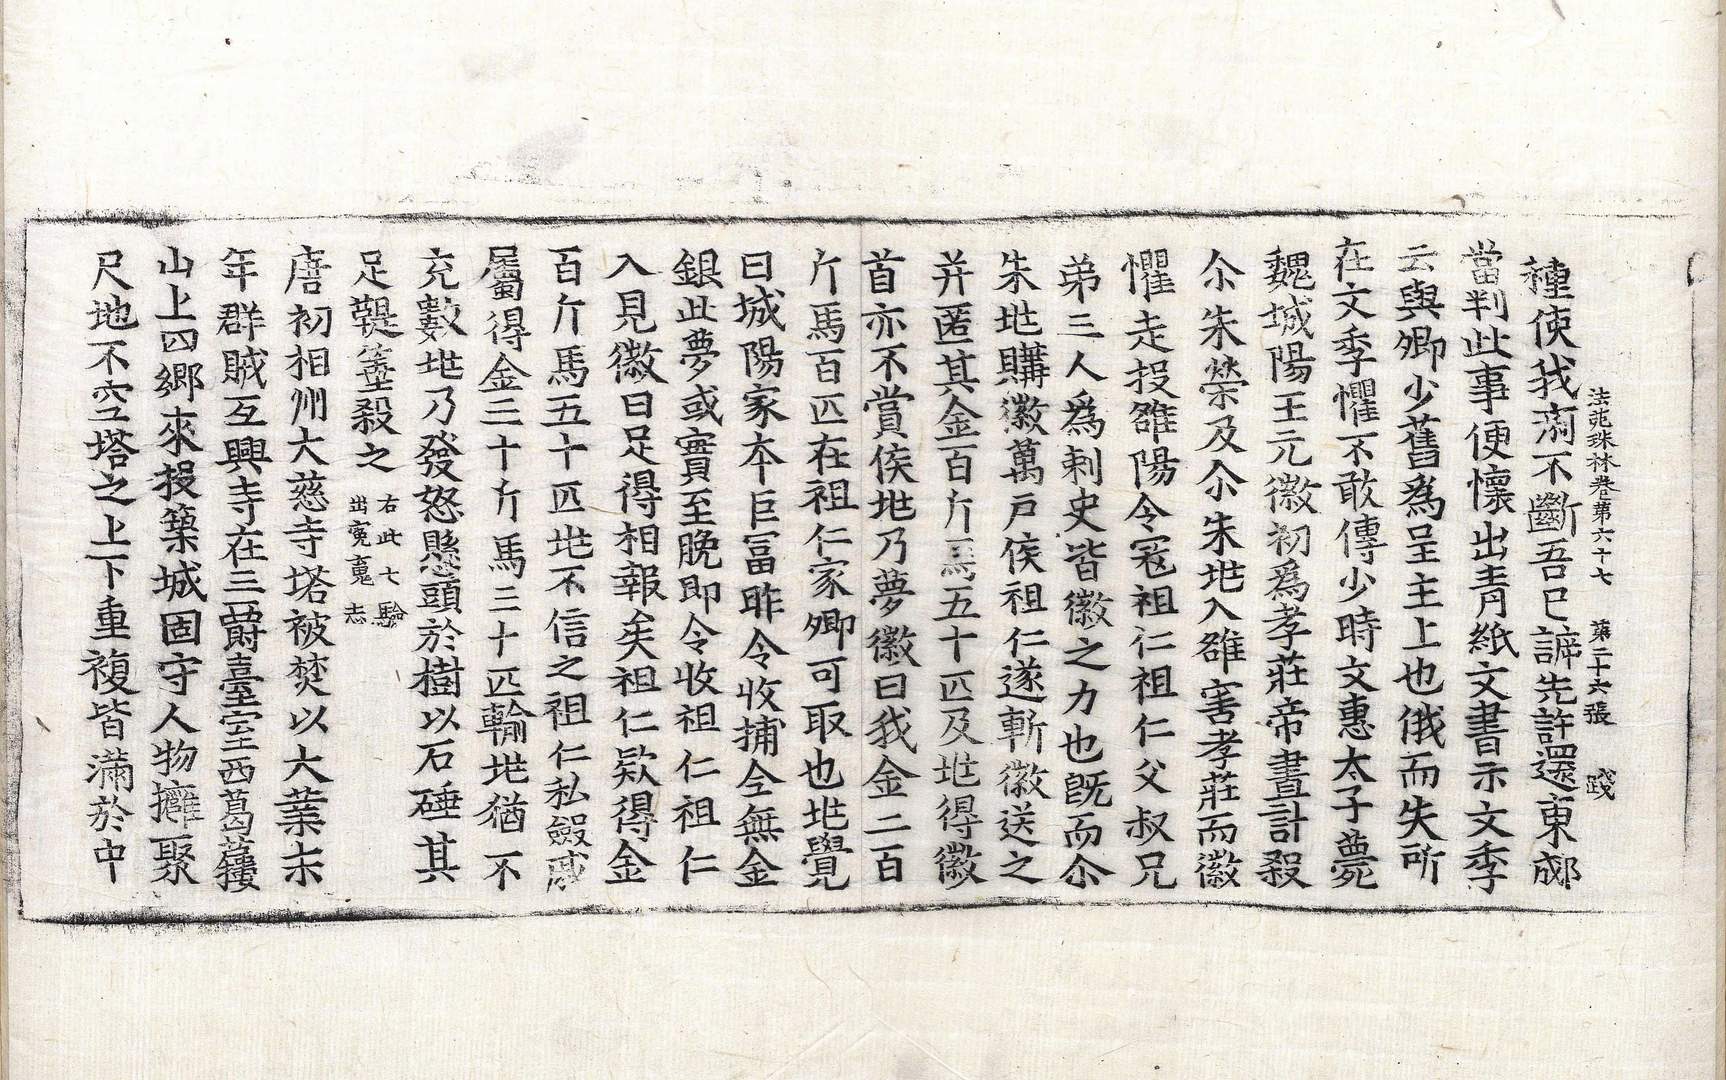 法苑珠林卷第六十七　第二十六張　踐
種使我痢不斷吾巳諦先許還東邸
當判此事便懷出青紙文書示文季
云與卿少舊爲呈主上也俄而失所
在文季懼不敢傳少時文惠太子薨
魏城陽王元徽初爲孝莊帝畫計殺
尒朱榮及尒朱兆入雒害孝莊而徽
懼走投雒陽令寇祖仁祖仁父叔兄
弟三人爲刺史皆徽之力也旣而尒
朱兆購徽萬戸侯祖仁遂斬徽送之
并匿其金百斤馬五十匹及兆得徽
首亦不賞侯兆乃夢徽曰我金二百
斤馬百匹在祖仁家卿可取也兆覺
曰城陽家本巨冨昨令收捕全無金
銀此夢或實至晩即令收祖仁祖仁
入見徽曰足得相報矣祖仁欵得金
百斤馬五十匹兆不信之祖仁私斂戚
屬得金三十斤馬三十匹輸兆猶不
充數兆乃發怒懸頭於樹以石硾其
足鞭箠殺之　右此七驗
出寃䰟志
唐初相州大慈寺塔被焚以大業末
年群賊互興寺在三爵臺室西葛蔞
山上四鄉來投築城固守人物擁聚
尺地不空塔之上下重複皆滿於中